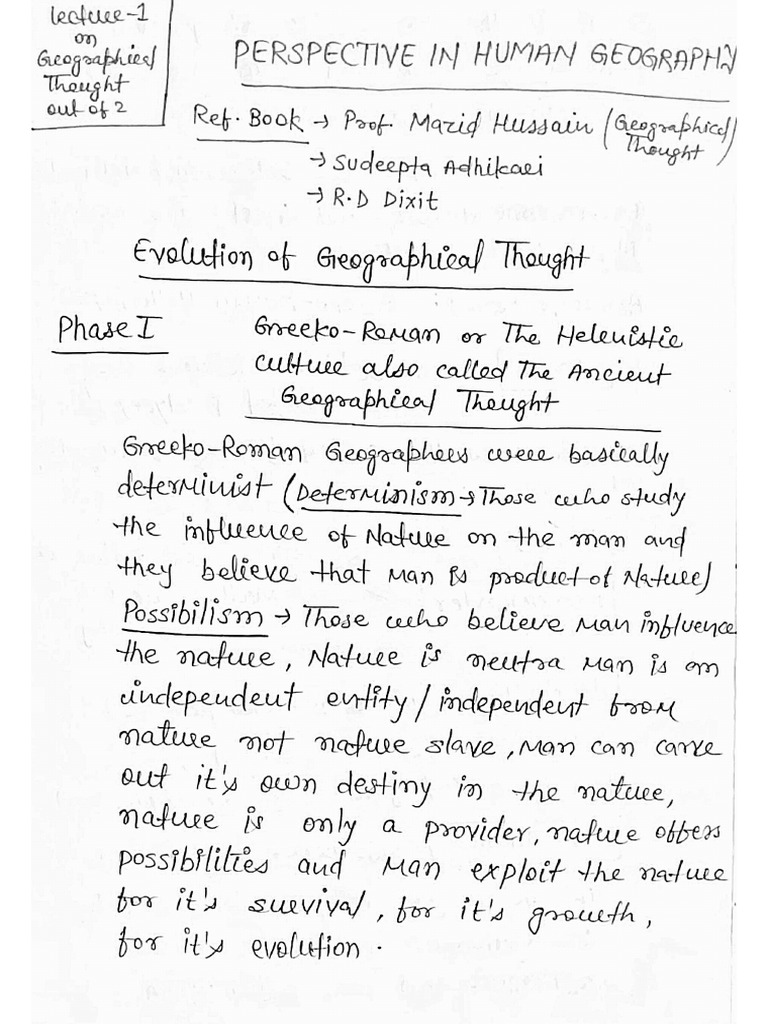 Lecture-1
on
Geographical
Thought
out of 2
PERSPECTIVE IN HUMAN GEOGRAPHY
Ref. Book → Prof. Mazid Hussain (Geographical Thought)
→ Sudeepta Adhikari
→ R.D Dixit
Evolution of Geographical Thought
Phase I Greeko-Roman or The Helenistic
culture also called The Ancient
Geographical Thought
Greeko-Roman Geographers were basically
determinist (Determinism → Those who study
the influence of Nature on the man and
they believe that Man is product of Nature)
Possibilism → Those who believe Man influence
the nature, Nature is neutra Man is an
independent entity/independent from
nature not nature slave, Man can carve
out it's own destiny in the nature,
nature is only a provider, nature offers
possibilities and Man exploit the nature
for it's survival, for it's growth,
for it's evolution.